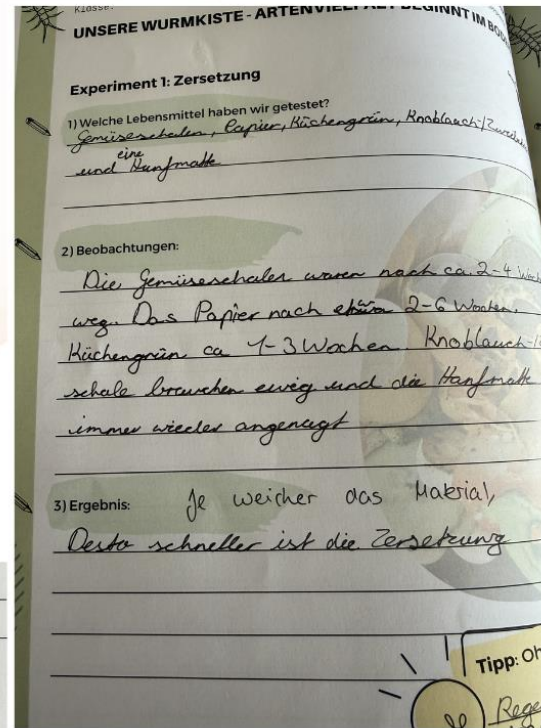 Klasse:
UNSERE WURMKISTE - ARTENVIELFALT BEGINNT IM BOD
Experiment 1: Zersetzung
1) Welche Lebensmittel haben wir getestet?
Gemüseschalen, Papier, Küchengrün, Knoblauch-/Zwiebel
eine
und Hanfmatte
2) Beobachtungen:
Die Gemüseschalen waren nach ca. 2-4 Woch
weg. Das Papier nach etwa 2-6 Wochen.
Küchengrün ca 1-3 Wochen. Knoblauch-
schale brauchen ewig und die Hanfmatte
immer wieder angenagt
3) Ergebnis: Je weicher das Material,
Desto schneller ist die Zersetzung
Tipp: Oh
Rege